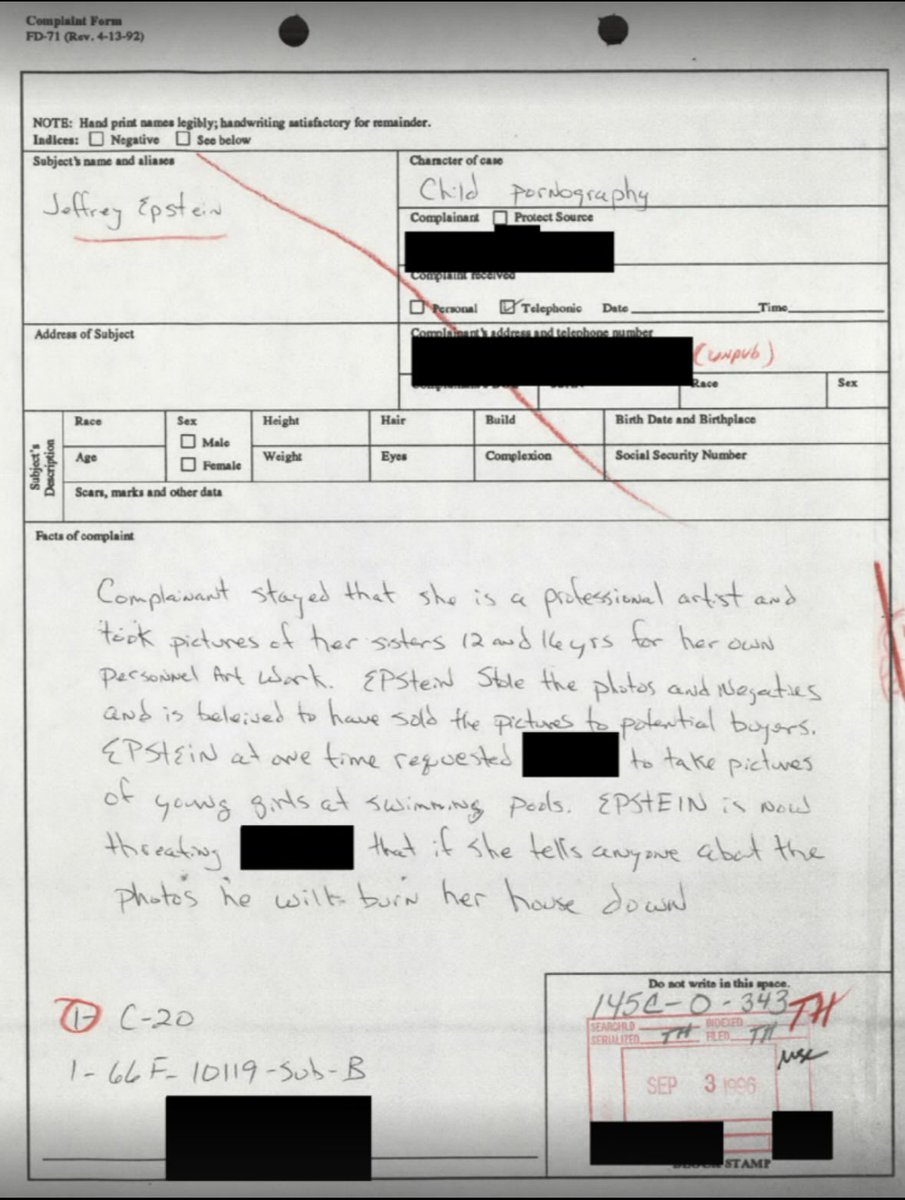 Complaint Form
FD-71 (Rev. 4-13-92)
NOTE: Hand print names legibly; handwriting satisfactory for remainder.
Indices: ☐ Negative ☐ See below
Subject's name and aliases
Jeffrey Epstein
Character of case
Child Pornography
Complainant ☐ Protect Source
Complaint received
☐ Personal ☑ Telephonic Date Time
Address of Subject
Complainant's address and telephone number
(unpub)
Race Sex
Subject's Description
Race Sex Height Hair Build Birth Date and Birthplace
☐ Male
Age ☐ Female Weight Eyes Complexion Social Security Number
Scars, marks and other data
Facts of complaint
Complainant stayed that she is a professional artist and
took pictures of her sisters 12 and 16 yrs for her own
personnel Art Work. EPStein Stole the photos and Negaties
and is beleived to have sold the pictures to potential buyers.
EPSTEIN at one time requested to take pictures
of young girls at swimming pools. EPSTEIN is now
threating that if she tells anyone abot the
photos he will burn her house down
1- C-20
1- 66F-10119-Sub-B
Do not write in this space.
145C-0-343 TH
SEARCHED INDEXED
SERIALIZED TH FILED TH
SEP 3 1996
STAMP